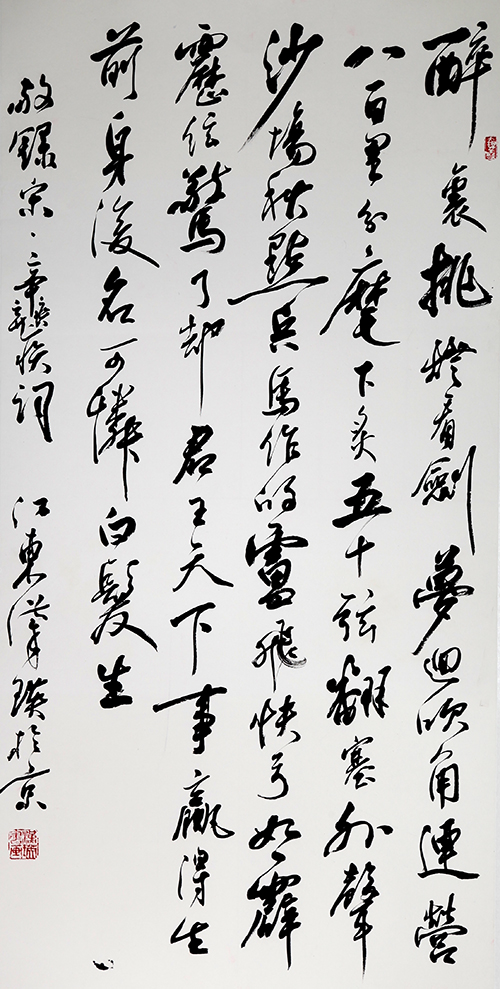 醉裏挑燈看劍夢迴吹角連營
八百里分麾下炙五十弦翻塞外聲
沙場秋點兵馬作的盧飛快弓如霹
靂弦驚了却君王天下事贏得生
前身後名可憐白髮生
敬錄宋辛棄疾詞 江東瑛於京